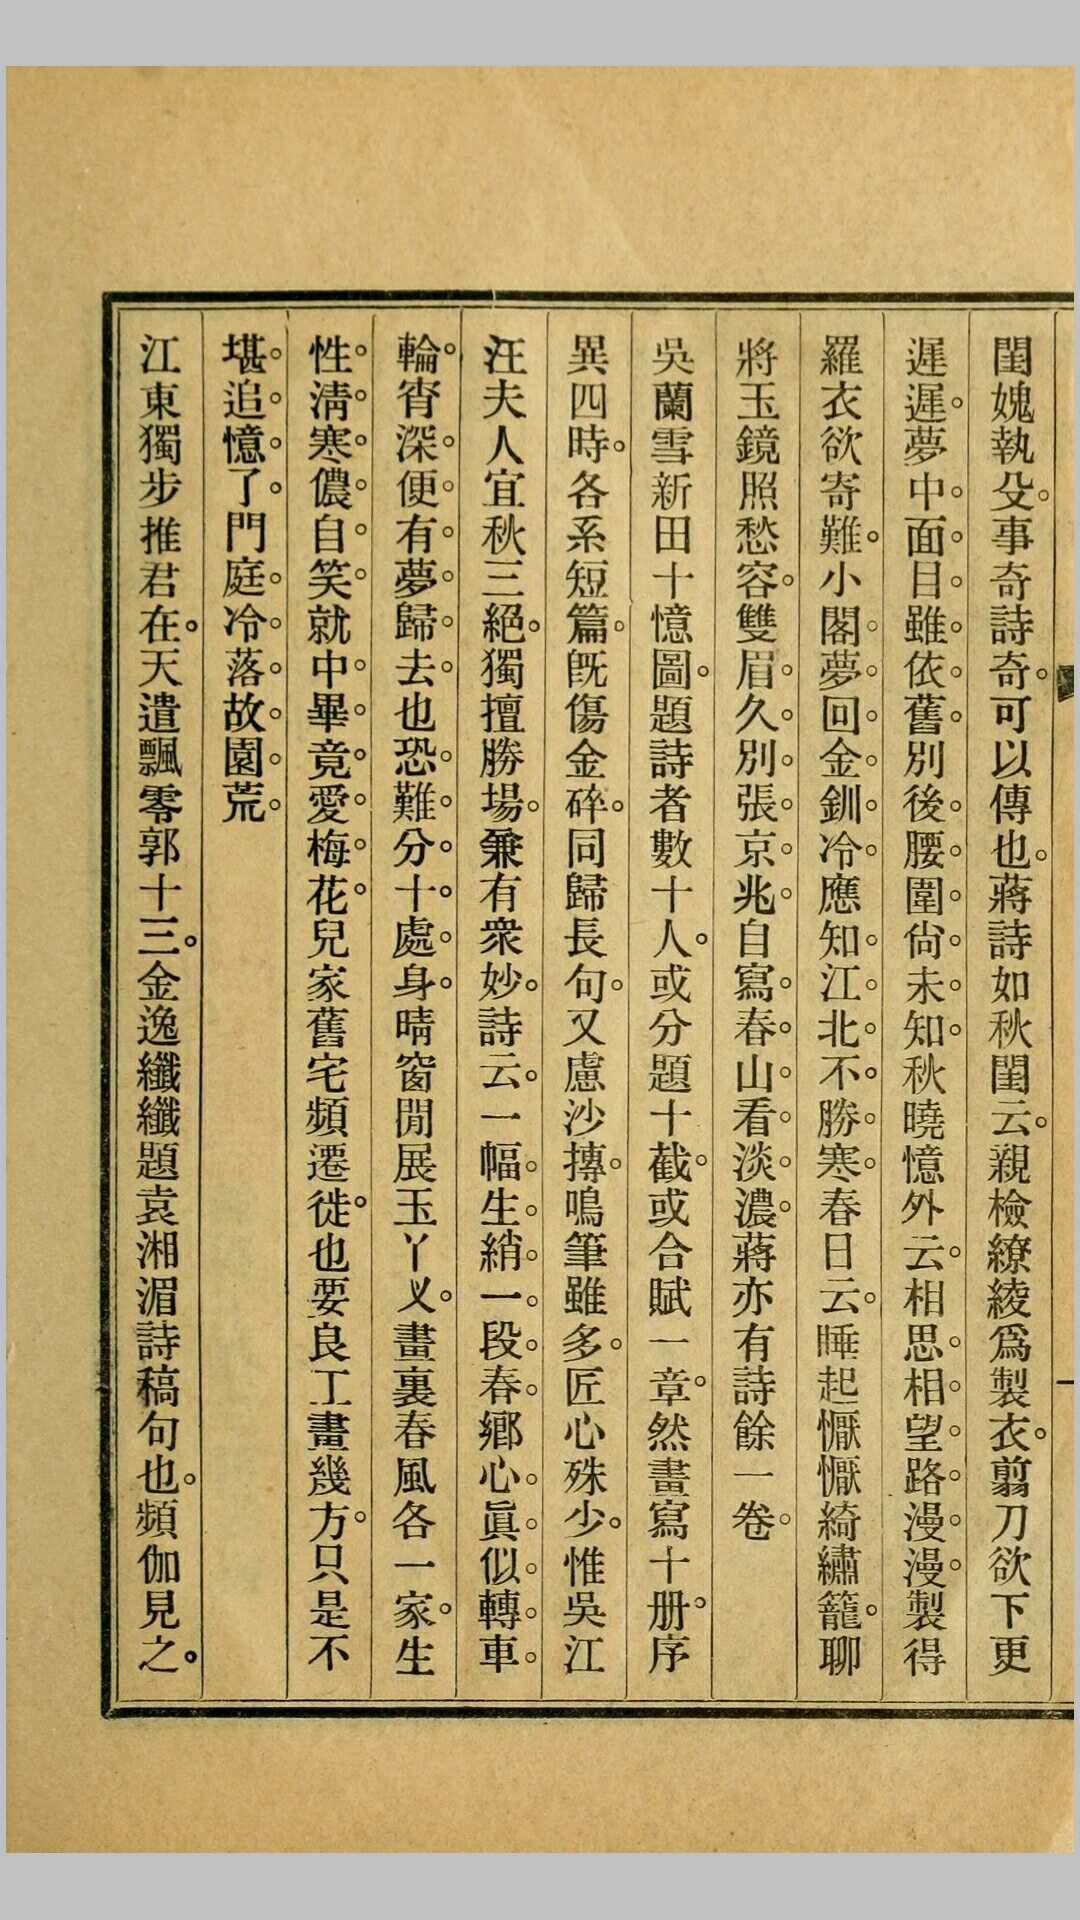 閨媿執殳。事奇詩奇。可以傳也。蔣詩如秋閨云。親檢繚綾爲製衣。翦刀欲下更
遲遲。夢中。面。目。雖。依。舊。別後。腰。圍。尙。未。知。秋曉憶外云。相思。相。望。路。漫。漫。製得
羅衣欲寄難。小閣。夢。回。金。釧。冷。應知。江。北。不。勝。寒。春日云。睡起懨懨綺繡籠。聊
將玉鏡照愁容。雙眉。久。別。張。京。兆。自寫。春。山。看。淡。濃。蔣亦有詩餘一卷。
吳蘭雪新田十憶圖。題詩者數十人。或分題十截。或合賦一章。然畫寫十册。序
異四時。各系短篇。旣傷金碎。同歸長句。又慮沙摶。鳴筆雖多。匠心殊少。惟吳江
汪夫人宜秋三絕。獨擅勝場。兼有衆妙。詩云。一幅。生。綃。一。段。春。鄕心。眞。似。轉。車。
輪。宵深。便。有。夢。歸。去。也恐。難。分。十。處。身。晴窗閒展玉丫义。畫裏春風各一家。生
性。淸。寒。儂。自。笑。就中。畢。竟。愛。梅。花。兒家舊宅頻遷徙。也要良工畫幾方。只是不
堪。追。憶。了。門庭。冷。落。故。園。荒。
江東獨步推君在。天遣飄零郭十三。金逸纖纖題袁湘湄詩稿句也。頻伽見之。